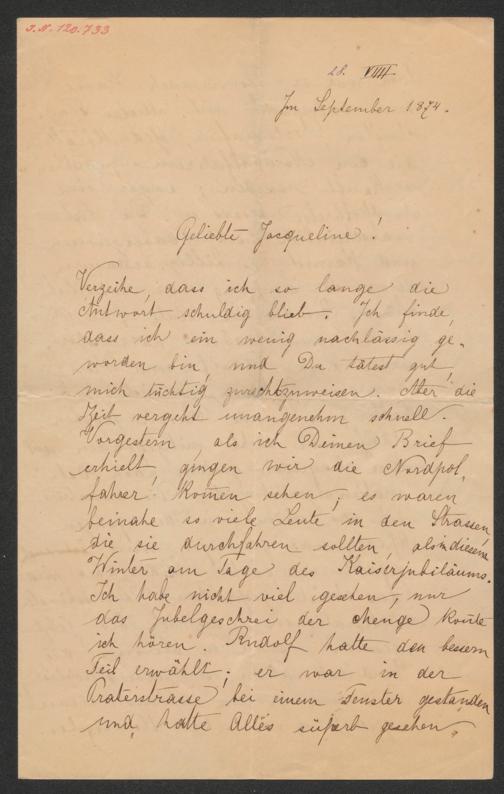 J.N. 120.733
28. VIIII
Im September 1874.
Geliebte Jacqueline!
Verzeihe, dass ich so lange die
Antwort schuldig blieb. Ich finde,
dass ich ein wenig nachlässig ge-
worden bin, und Du tätest gut,
mich tüchtig zurechtzuweisen. Aber die
Zeit vergeht unangenehm schnell.
Vorgestern, als ich Deinen Brief
erhielt, gingen wir die Nordpol-
fahrer komen sehen; es waren
beinahe so viele Leute in den Strassen,
die sie durchfahren sollten, als in diesem
Winter am Tage des Kaiserjubiläums.
Ich habe nicht viel gesehen, nur
das Jubelgeschrei der Menge konte
ich hören. Rudolf hatte den bessern
Teil erwählt; er war in der
Praterstrasse bei einem Fenster gestanden
und hatte Alles süperb gesehen.